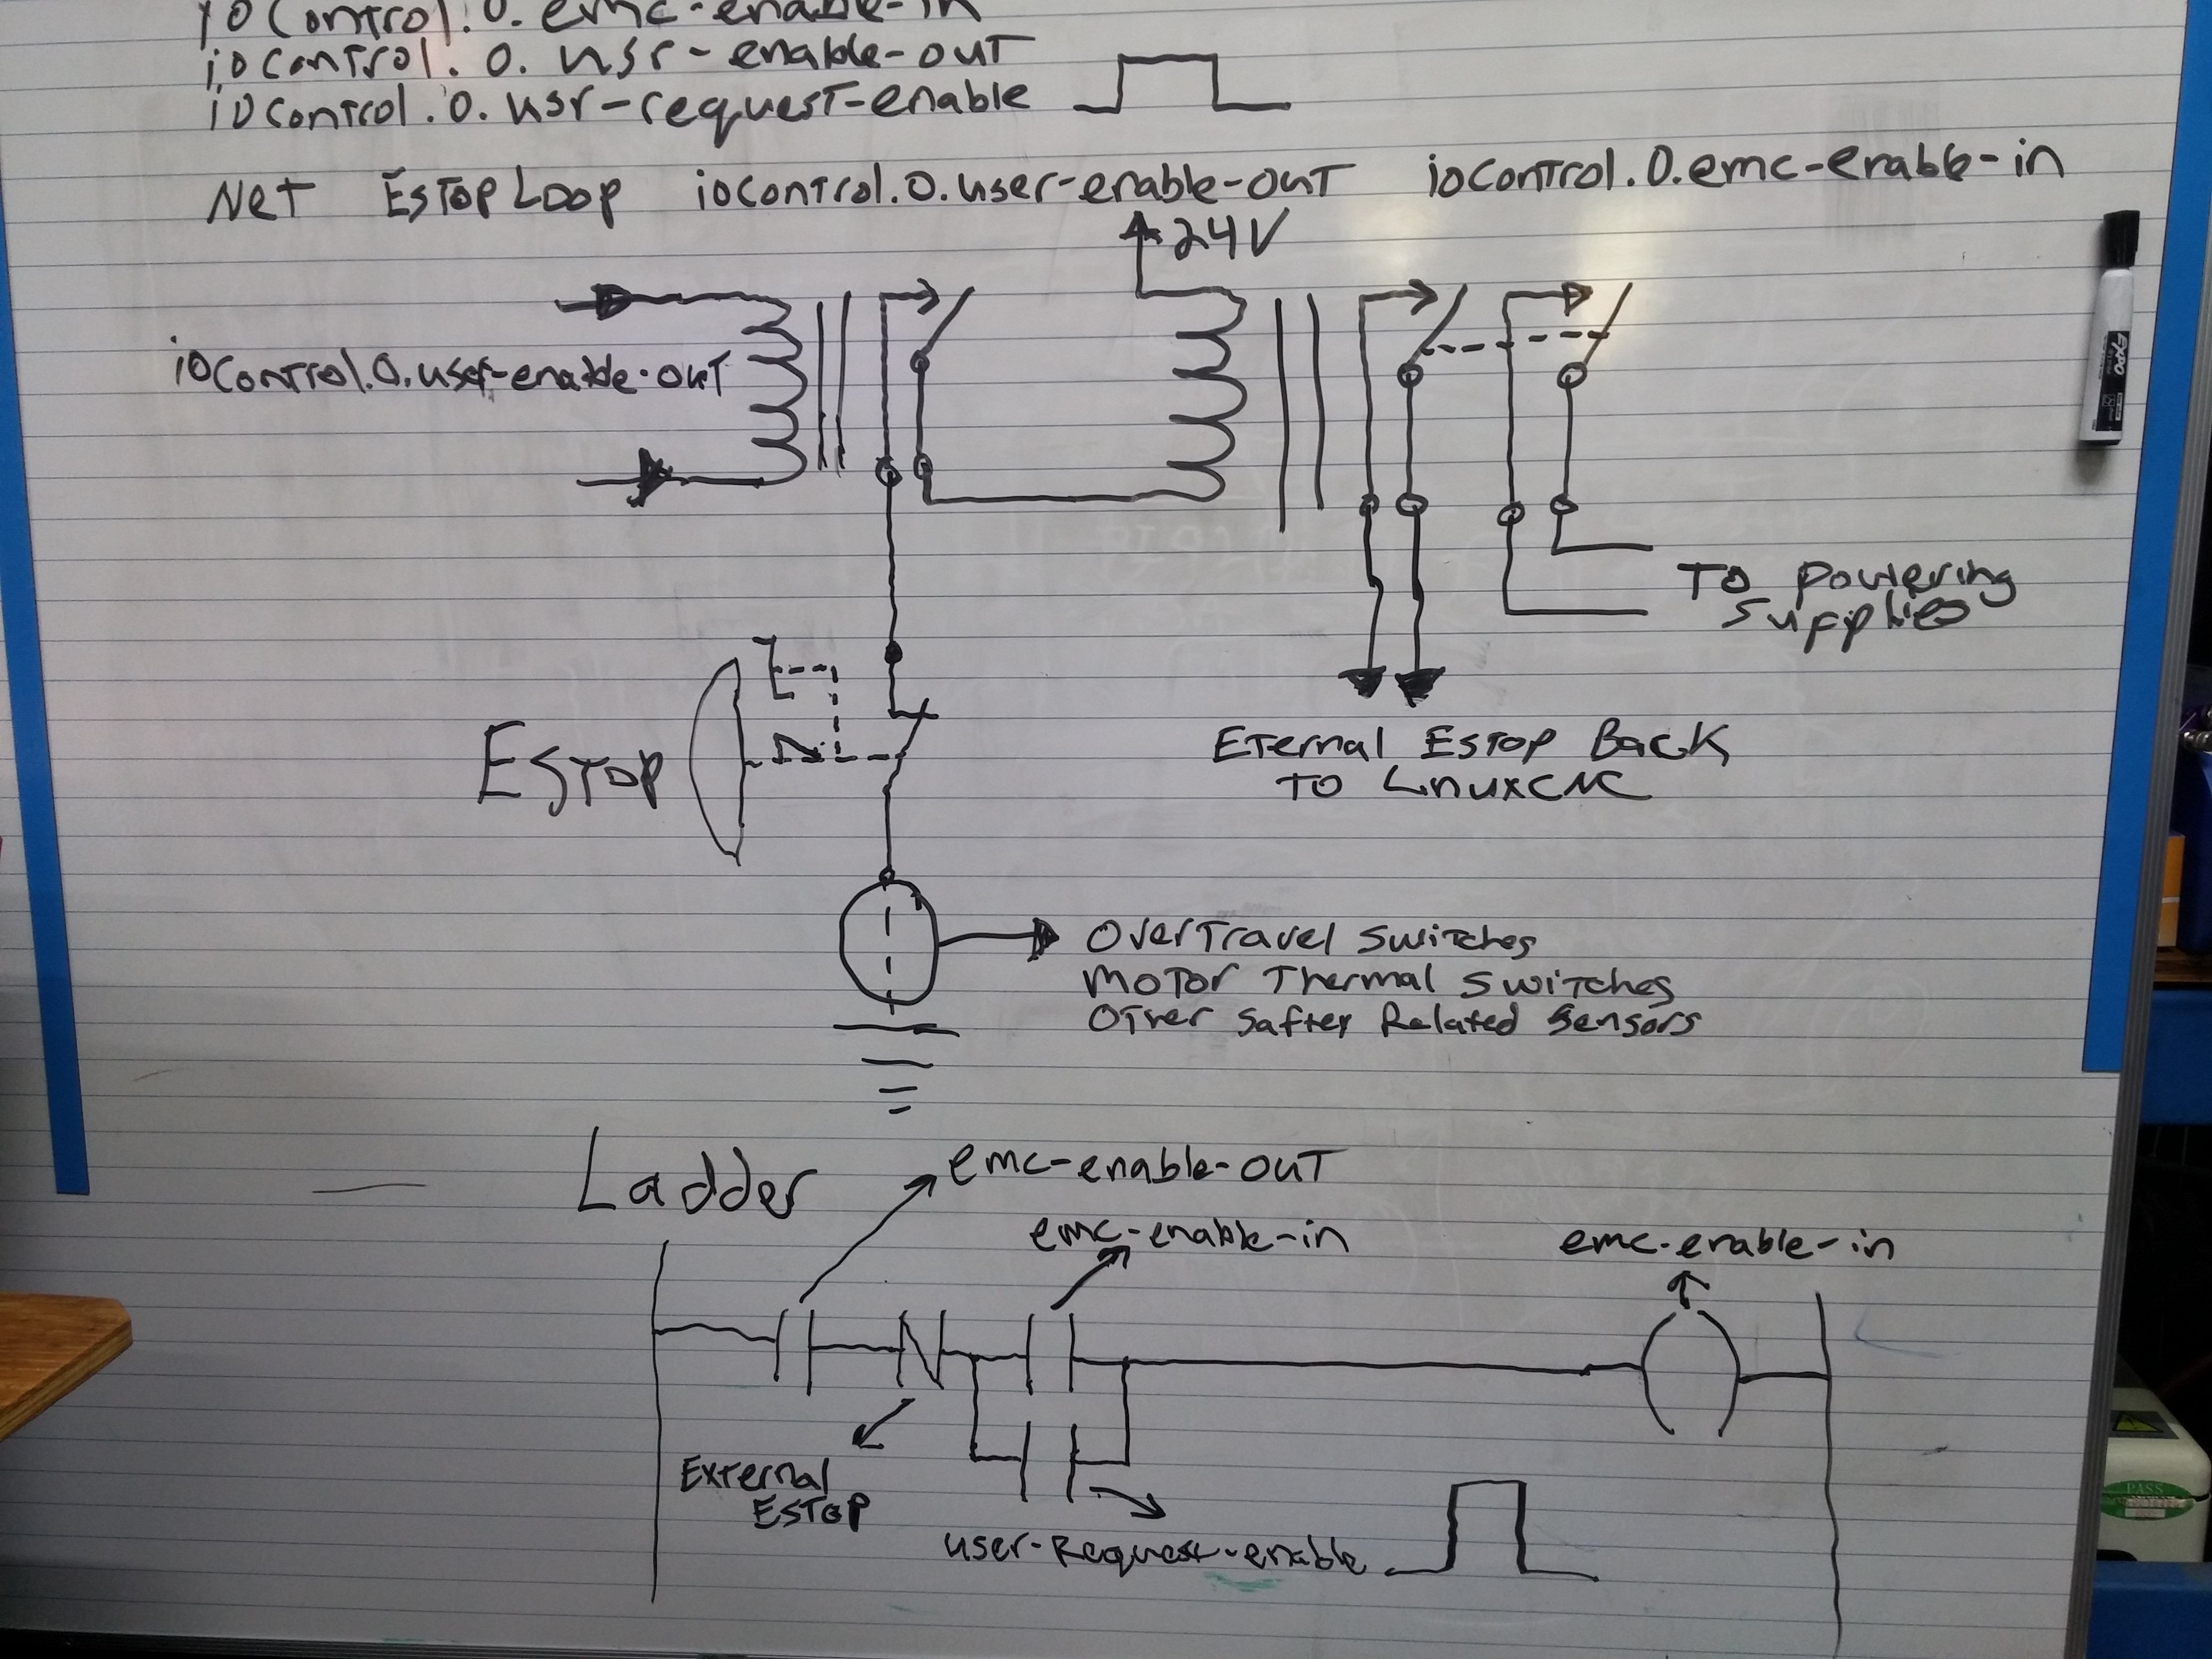 iocontrol.0.emc-enable-in
iocontrol.0.usr-enable-out
iocontrol.0.usr-request-enable
Net EstopLoop iocontrol.0.user-enable-out iocontrol.0.emc-enable-in
24V
iocontrol.0.user-enable-out
To Powering
Supplies
Estop
Eternal Estop Back
To LinuxCNC
Overtravel Switches
Motor Thermal Switches
Other Saftey Related Sensors
Ladder
emc-enable-out
emc-enable-in
emc-enable-in
External
Estop
user-Request-enable
EXPO
PASS